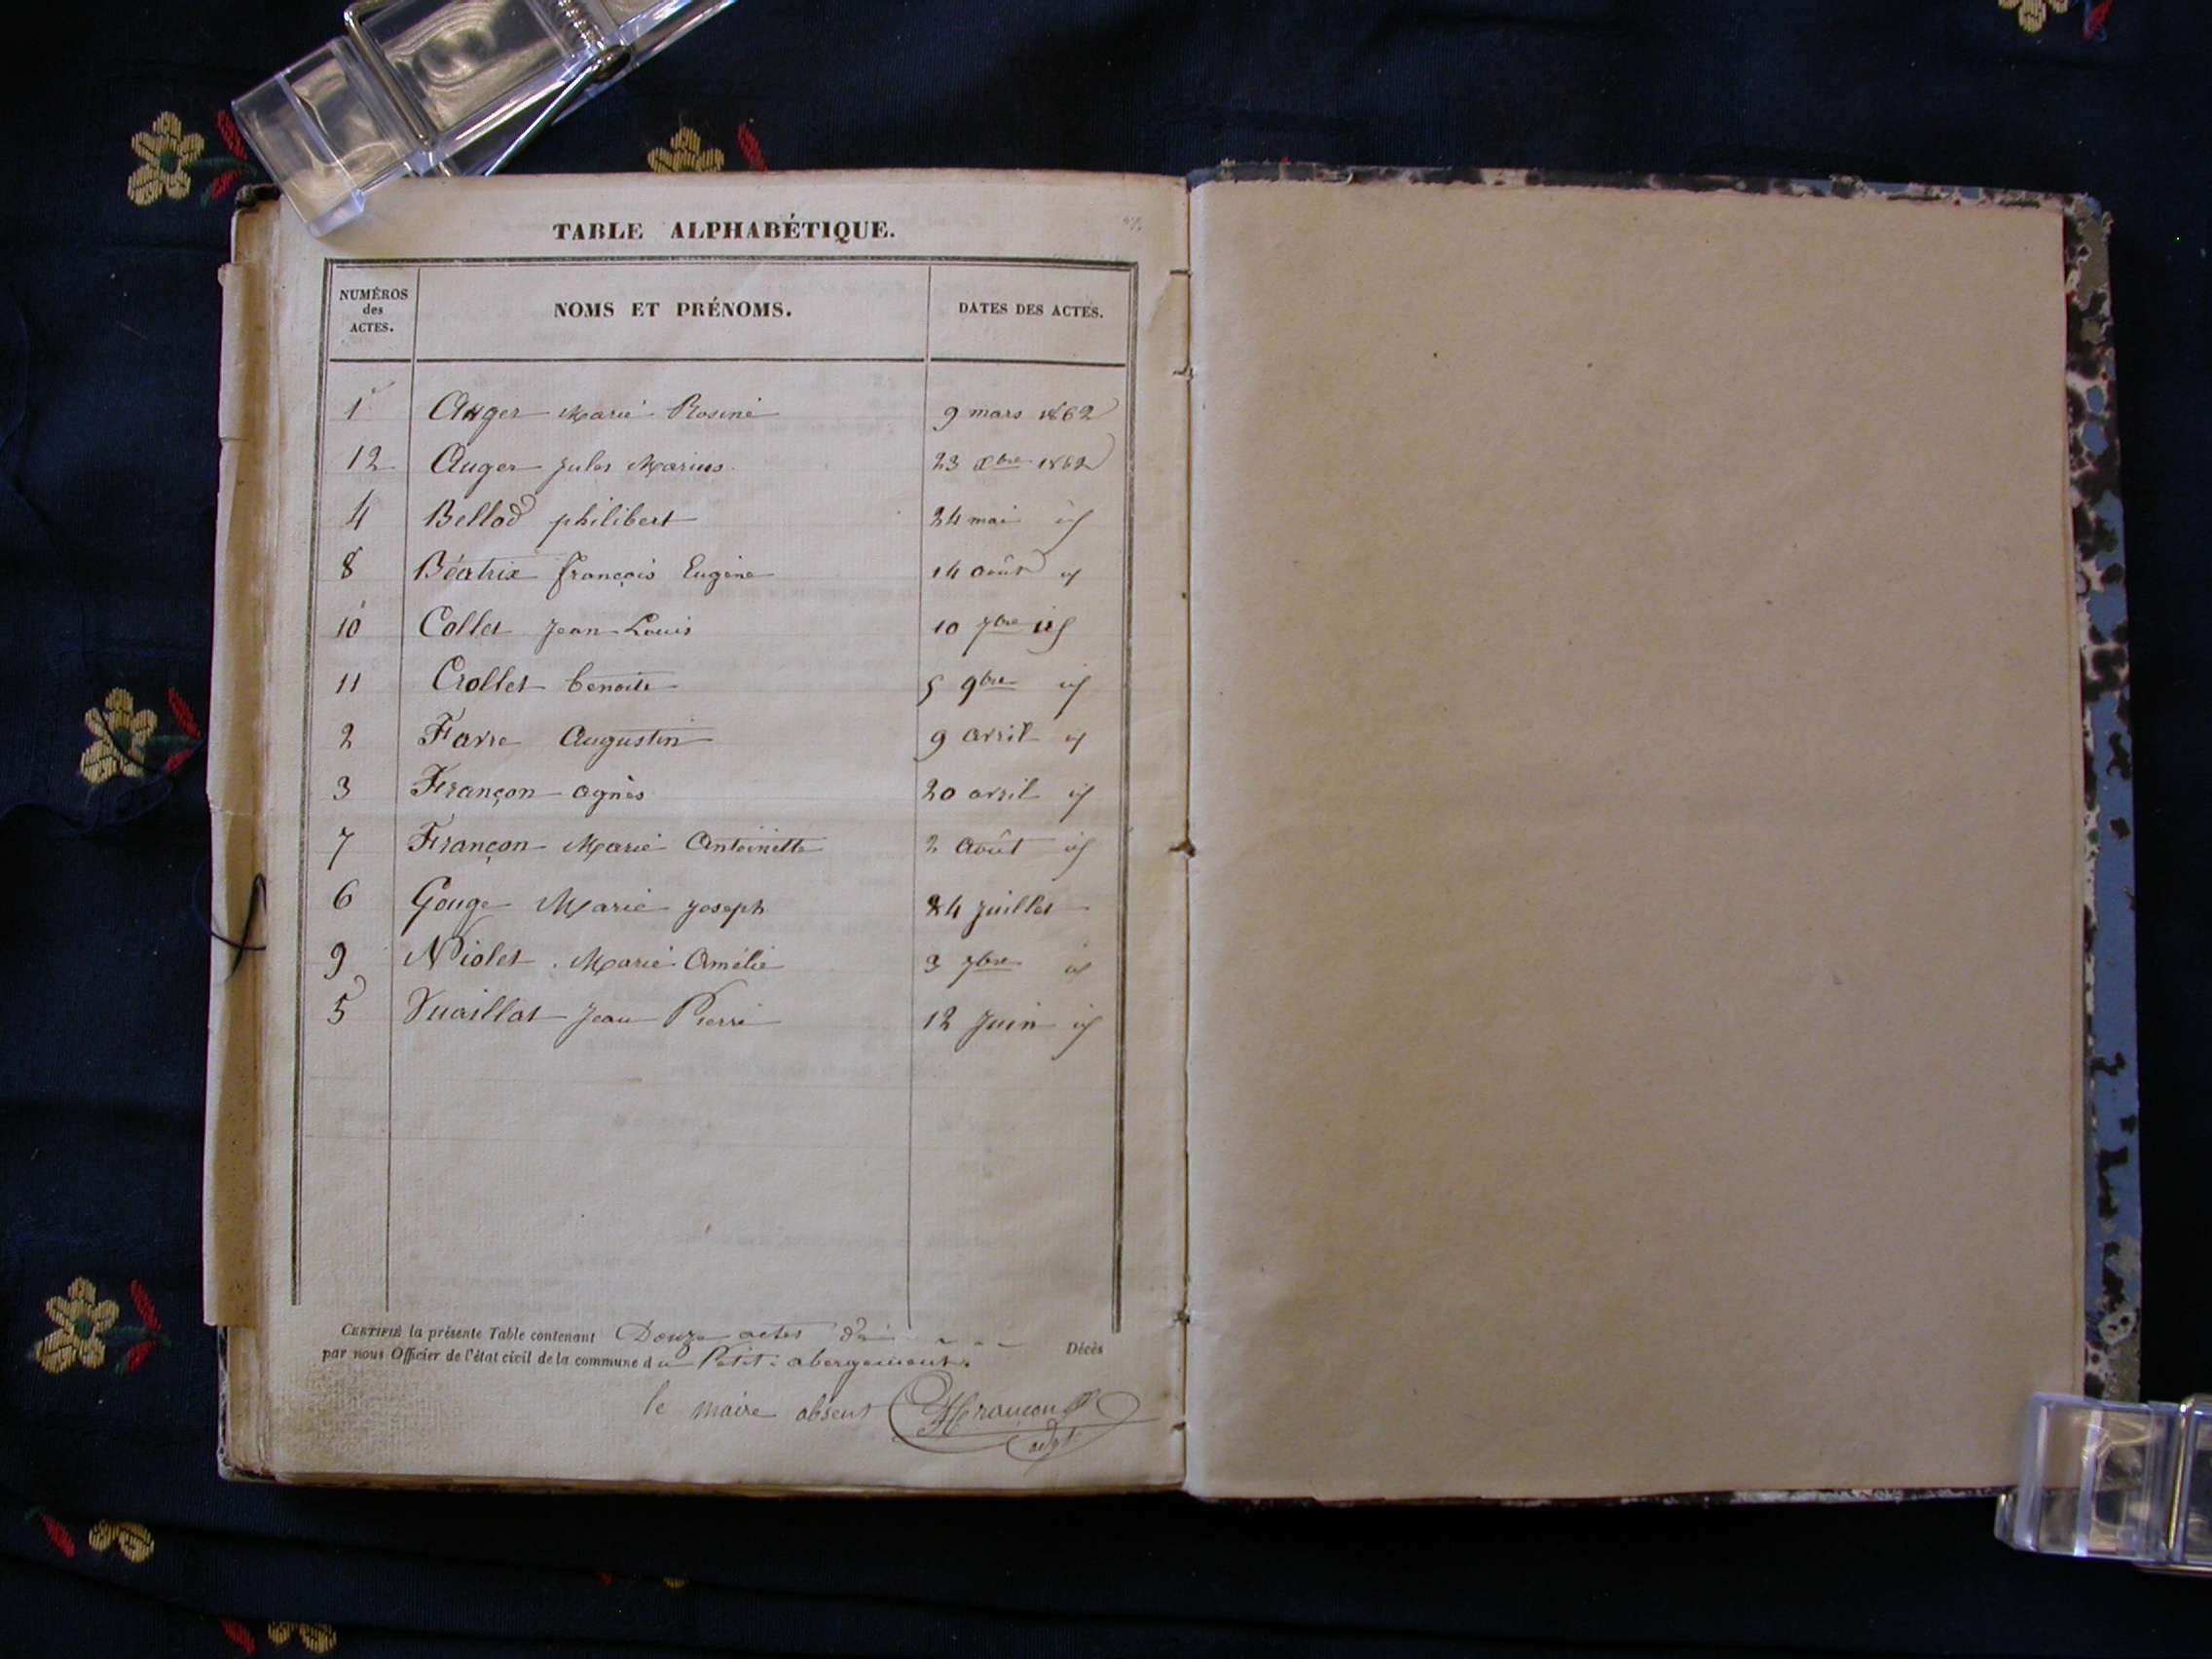 TABLE ALPHABÉTIQUE.
NUMÉROS des ACTES. NOMS ET PRÉNOMS. DATES DES ACTES.
1 Auger Marie Rosine 9 mars 1862
12 Auger Jules Marius 23 Xbre 1862
4 Bellod philibert 24 mai id
8 Béatrix françois Eugène 14 août id
10 Collet Jean Louis 10 7bre id
11 Crollet benoite 5 9bre id
2 Favre Augustin 9 avril id
3 Françon agnès 20 avril id
7 Françon Marie Antoinette 2 Août id
6 Gouge Marie joseph 24 juillet
9 Niolet Marie Amélie 3 7bre id
5 Vuaillat Jean Pierre 12 Juin id
CERTIFIÉ la présente Table contenant Douze actes de Décès
par nous Officier de l'état civil de la commune du Petit-abergement.
le maire absent Françon
adjt